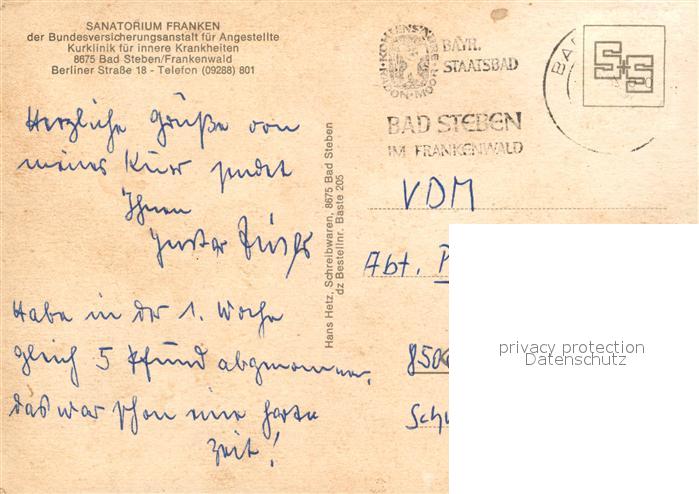 SANATORIUM FRANKEN
der Bundesversicherungsanstalt für Angestellte
Kurklinik für innere Krankheiten
8675 Bad Steben/Frankenwald
Berliner Straße 18 - Telefon (09288) 801
BAYR.
STAATSBAD
BAD STEBEN
IM FRANKENWALD
BA
S+S
Herzliche Grüße von
meiner Kur sendet
Ihnen
Gustav
Habe in der 1. Woche
gleich 5 Pfund abgenommen,
das war schon eine harte
Zeit!
Hans Hetz, Schreibwaren, 8675 Bad Steben
dz Bestellnr. Baste 205
VDM
Abt. P
850
Schw
privacy protection
Datenschutz